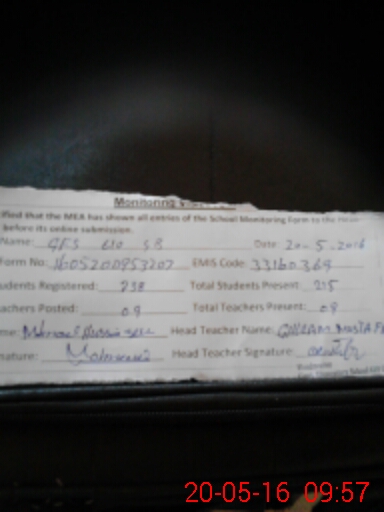 Monitoring
ified that the MEA has shown all entries of the School Monitoring Form to the Head
before its online submission.
Name: GES 610 SB Date: 20-5-2016
Form No: 16052000953207 EMIS Code: 33160369
udents Registered: 238 Total Students Present: 215
achers Posted: 09 Total Teachers Present: 09
me: Head Teacher Name: GHULAM MUSTAFA
nature: Head Teacher Signature:
20-05-16 09:57